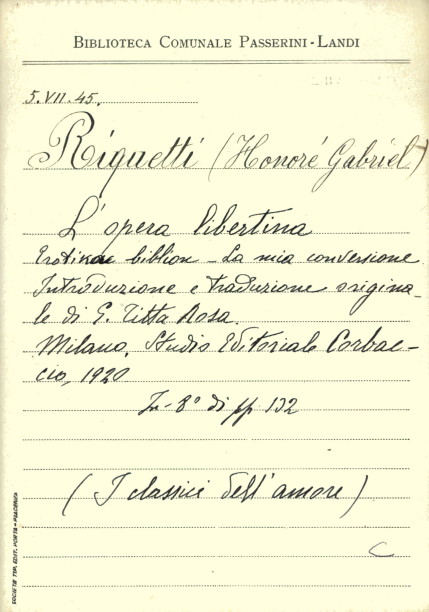 BIBLIOTECA COMUNALE PASSERINI-LANDI
5.VII.45.
Riquetti (Honoré Gabriel)
L'opera libertina
Erotikon biblion - La mia conversione
Introduzione e traduzione origina-
le di G. Titta Rosa.
Milano, Studio Editoriale Corbac-
cio, 1920
In-8° di pp 132
(I classici dell'amore)
C
SOCIETÀ TIP. EDIT. PORTA - PIACENZA